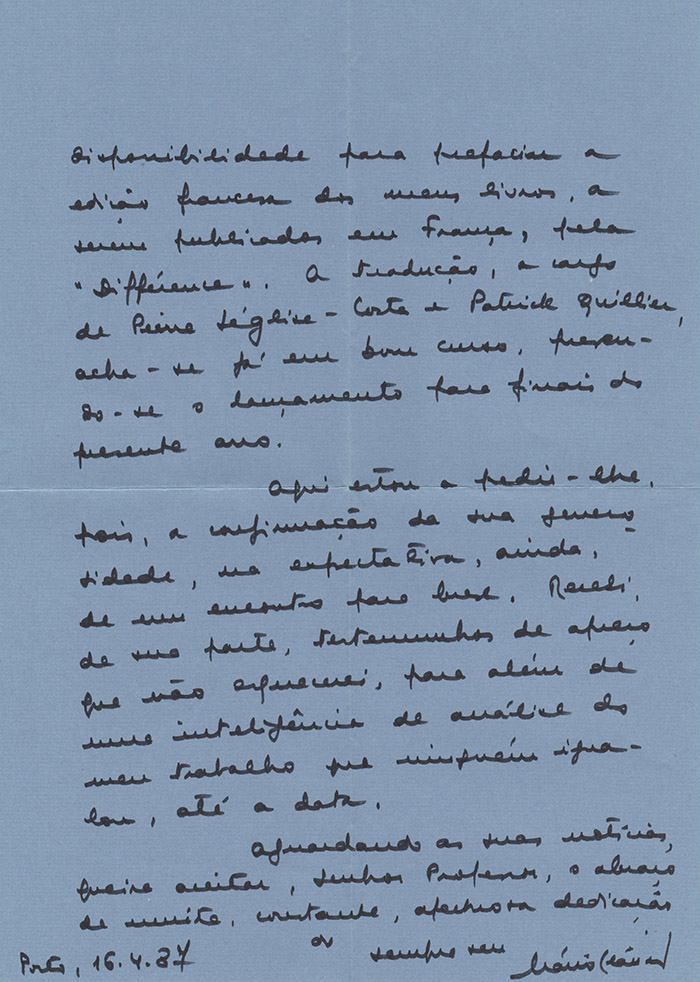 disponibilidade para prefaciar a
edição francesa dos meus livros, a
serem publicados em França, pela
"Différence". A tradução, a cargo
de Pierre Léglise-Costa e Patrick Quillier,
acha-se já em bom curso, preven-
do-se o lançamento para finais do
presente ano.
Aqui estou a pedir-lhe,
pois, a confirmação da sua genero-
sidade, na expectativa, ainda,
de um encontro para breve. Recebi,
de sua parte, testemunhos de apreço
que não esquecerei, para além de
uma inteligência de análise do
meu trabalho que ninguém igua-
lou, até a data.
Aguardando as suas notícias,
queira aceitar, Senhor Professor, o abraço
de muita, constante, afectuosa dedicação
do sempre seu
Mário Cláudio
Porto, 16.4.87